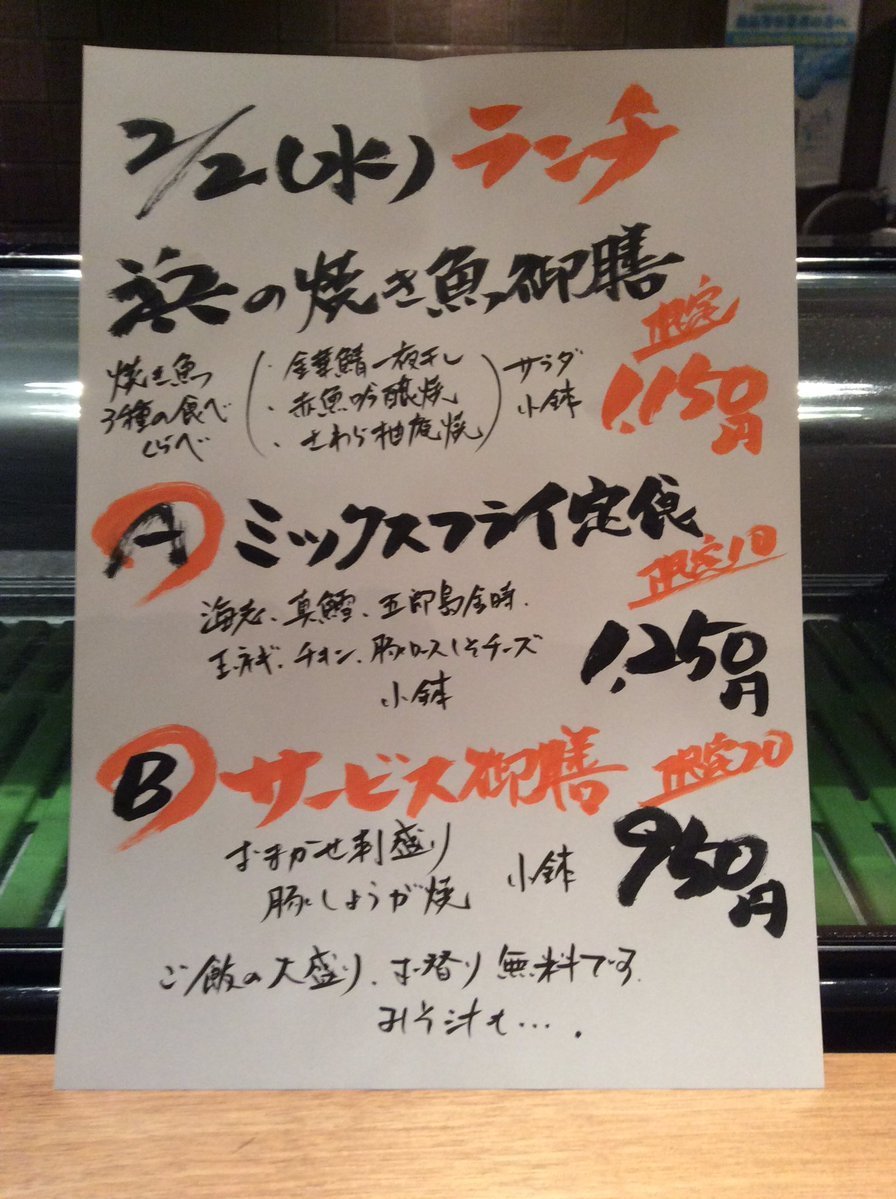 2/2(水) ランチ
浜の焼き魚御膳
限定
1,150円
焼き魚
3種の食べ
くらべ
・金華鯖一夜干し
・赤魚吟醸焼
・さわら柚庵焼
サラダ
小鉢
A ミックスフライ定食
限定10
海老、真鱈、五郎島金時、
玉ねぎ、チキン、豚ロースしそチーズ
小鉢
1,250円
B サービス御膳
限定20
おまかせ刺盛り
豚しょうが焼
小鉢
950円
ご飯の大盛り、お替り無料です。
みそ汁も….